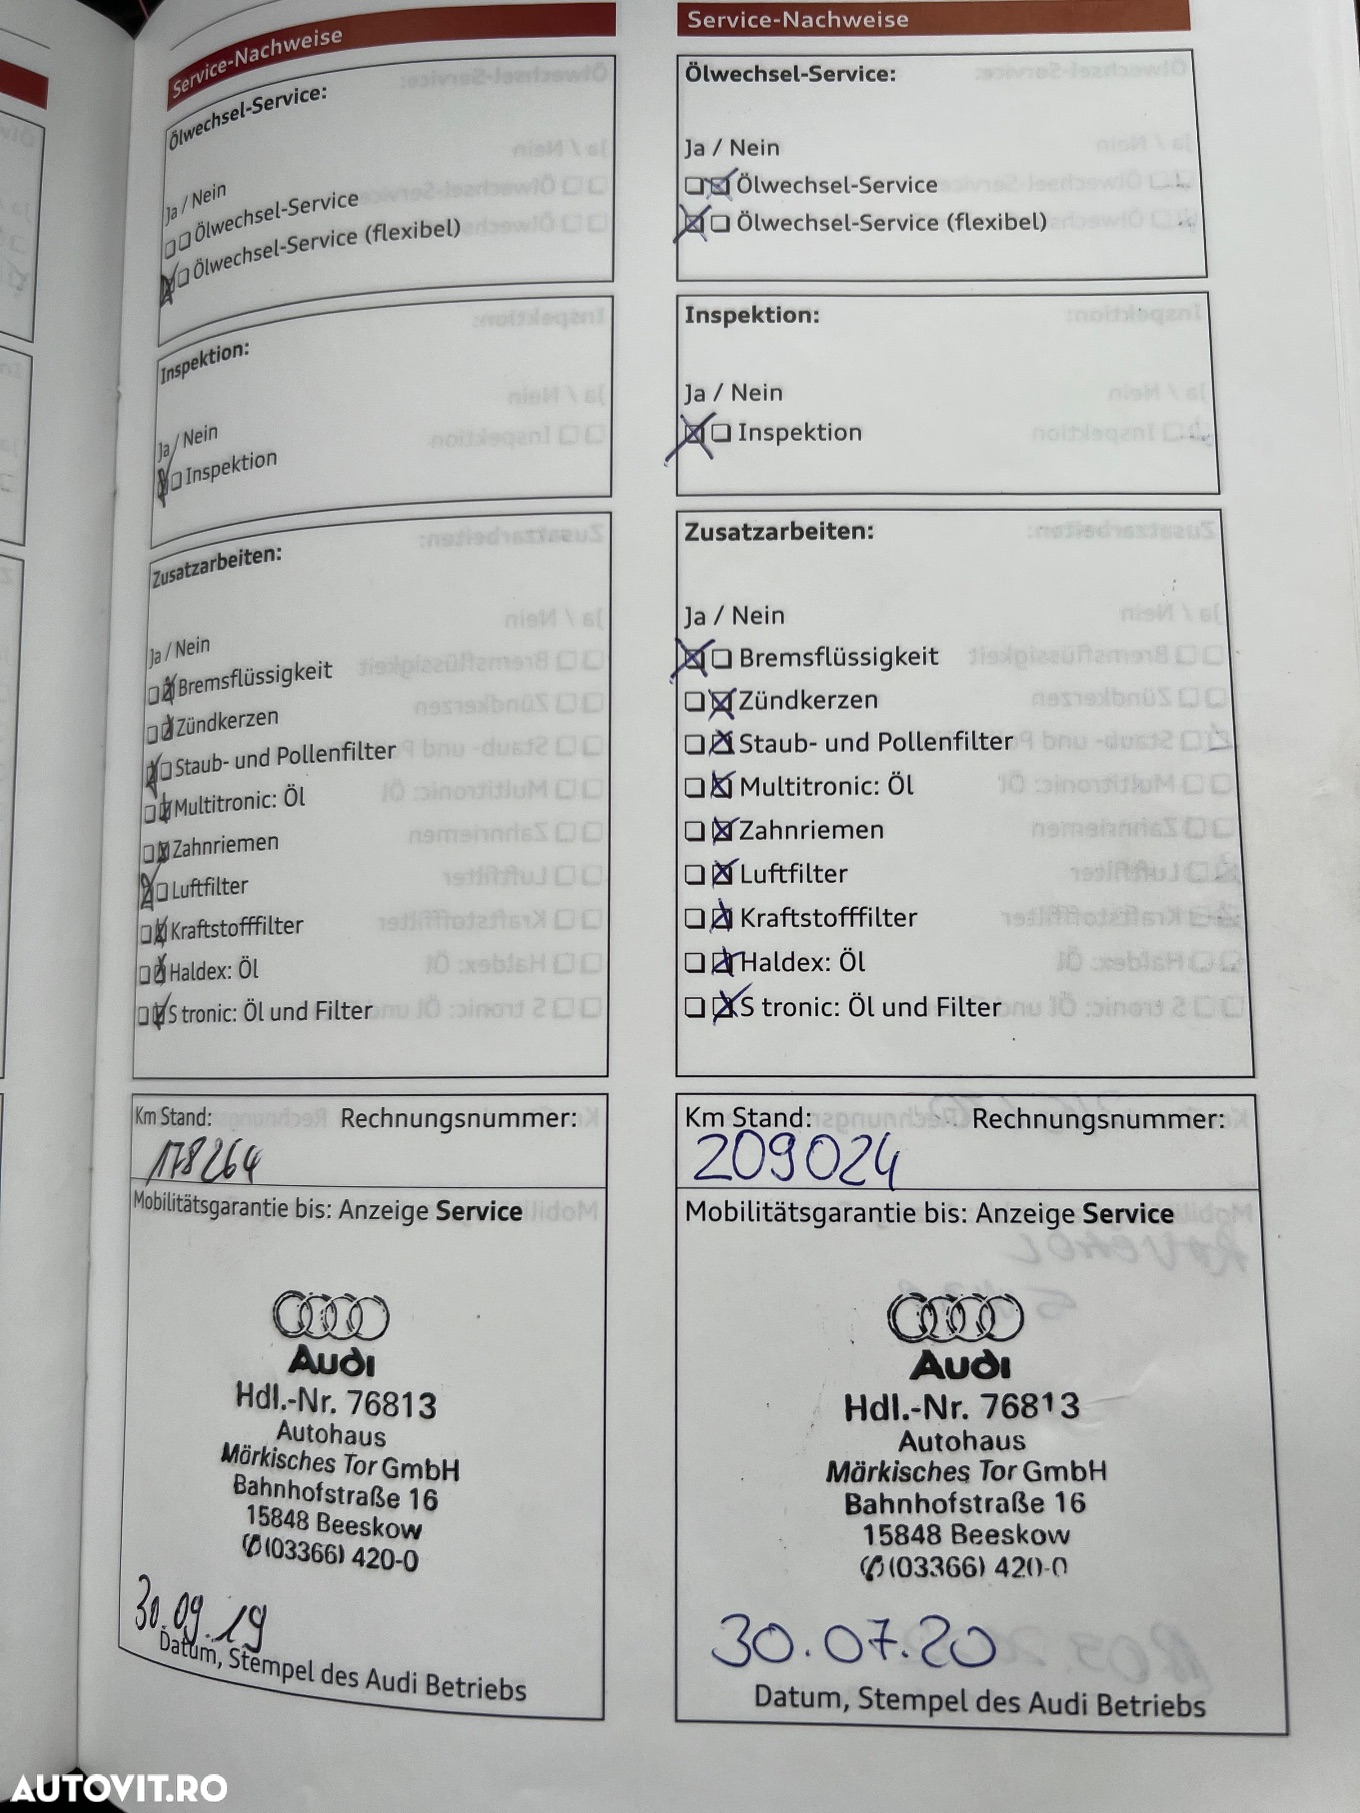 Service-Nachweise
Ölwechsel-Service:
Ja / Nein
Ölwechsel-Service
Ölwechsel-Service (flexibel)
Inspektion:
Ja / Nein
Inspektion
Zusatzarbeiten:
Ja / Nein
Bremsflüssigkeit
Zündkerzen
Staub- und Pollenfilter
Multitronic: Öl
Zahnriemen
Luftfilter
Kraftstofffilter
Haldex: Öl
S tronic: Öl und Filter
Km Stand: Rechnungsnummer:
178264
Mobilitätsgarantie bis: Anzeige Service
Audi
Hdl.-Nr. 76813
Autohaus
Märkisches Tor GmbH
Bahnhofstraße 16
15848 Beeskow
✆(03366) 420-0
30.09.19
Datum, Stempel des Audi Betriebs
Service-Nachweise
Ölwechsel-Service:
Ja / Nein
Ölwechsel-Service
Ölwechsel-Service (flexibel)
Inspektion:
Ja / Nein
Inspektion
Zusatzarbeiten:
Ja / Nein
Bremsflüssigkeit
Zündkerzen
Staub- und Pollenfilter
Multitronic: Öl
Zahnriemen
Luftfilter
Kraftstofffilter
Haldex: Öl
S tronic: Öl und Filter
Km Stand: Rechnungsnummer:
209024
Mobilitätsgarantie bis: Anzeige Service
Audi
Hdl.-Nr. 76813
Autohaus
Märkisches Tor GmbH
Bahnhofstraße 16
15848 Beeskow
✆(03366) 420-0
30.07.20
Datum, Stempel des Audi Betriebs
AUTOVIT.RO